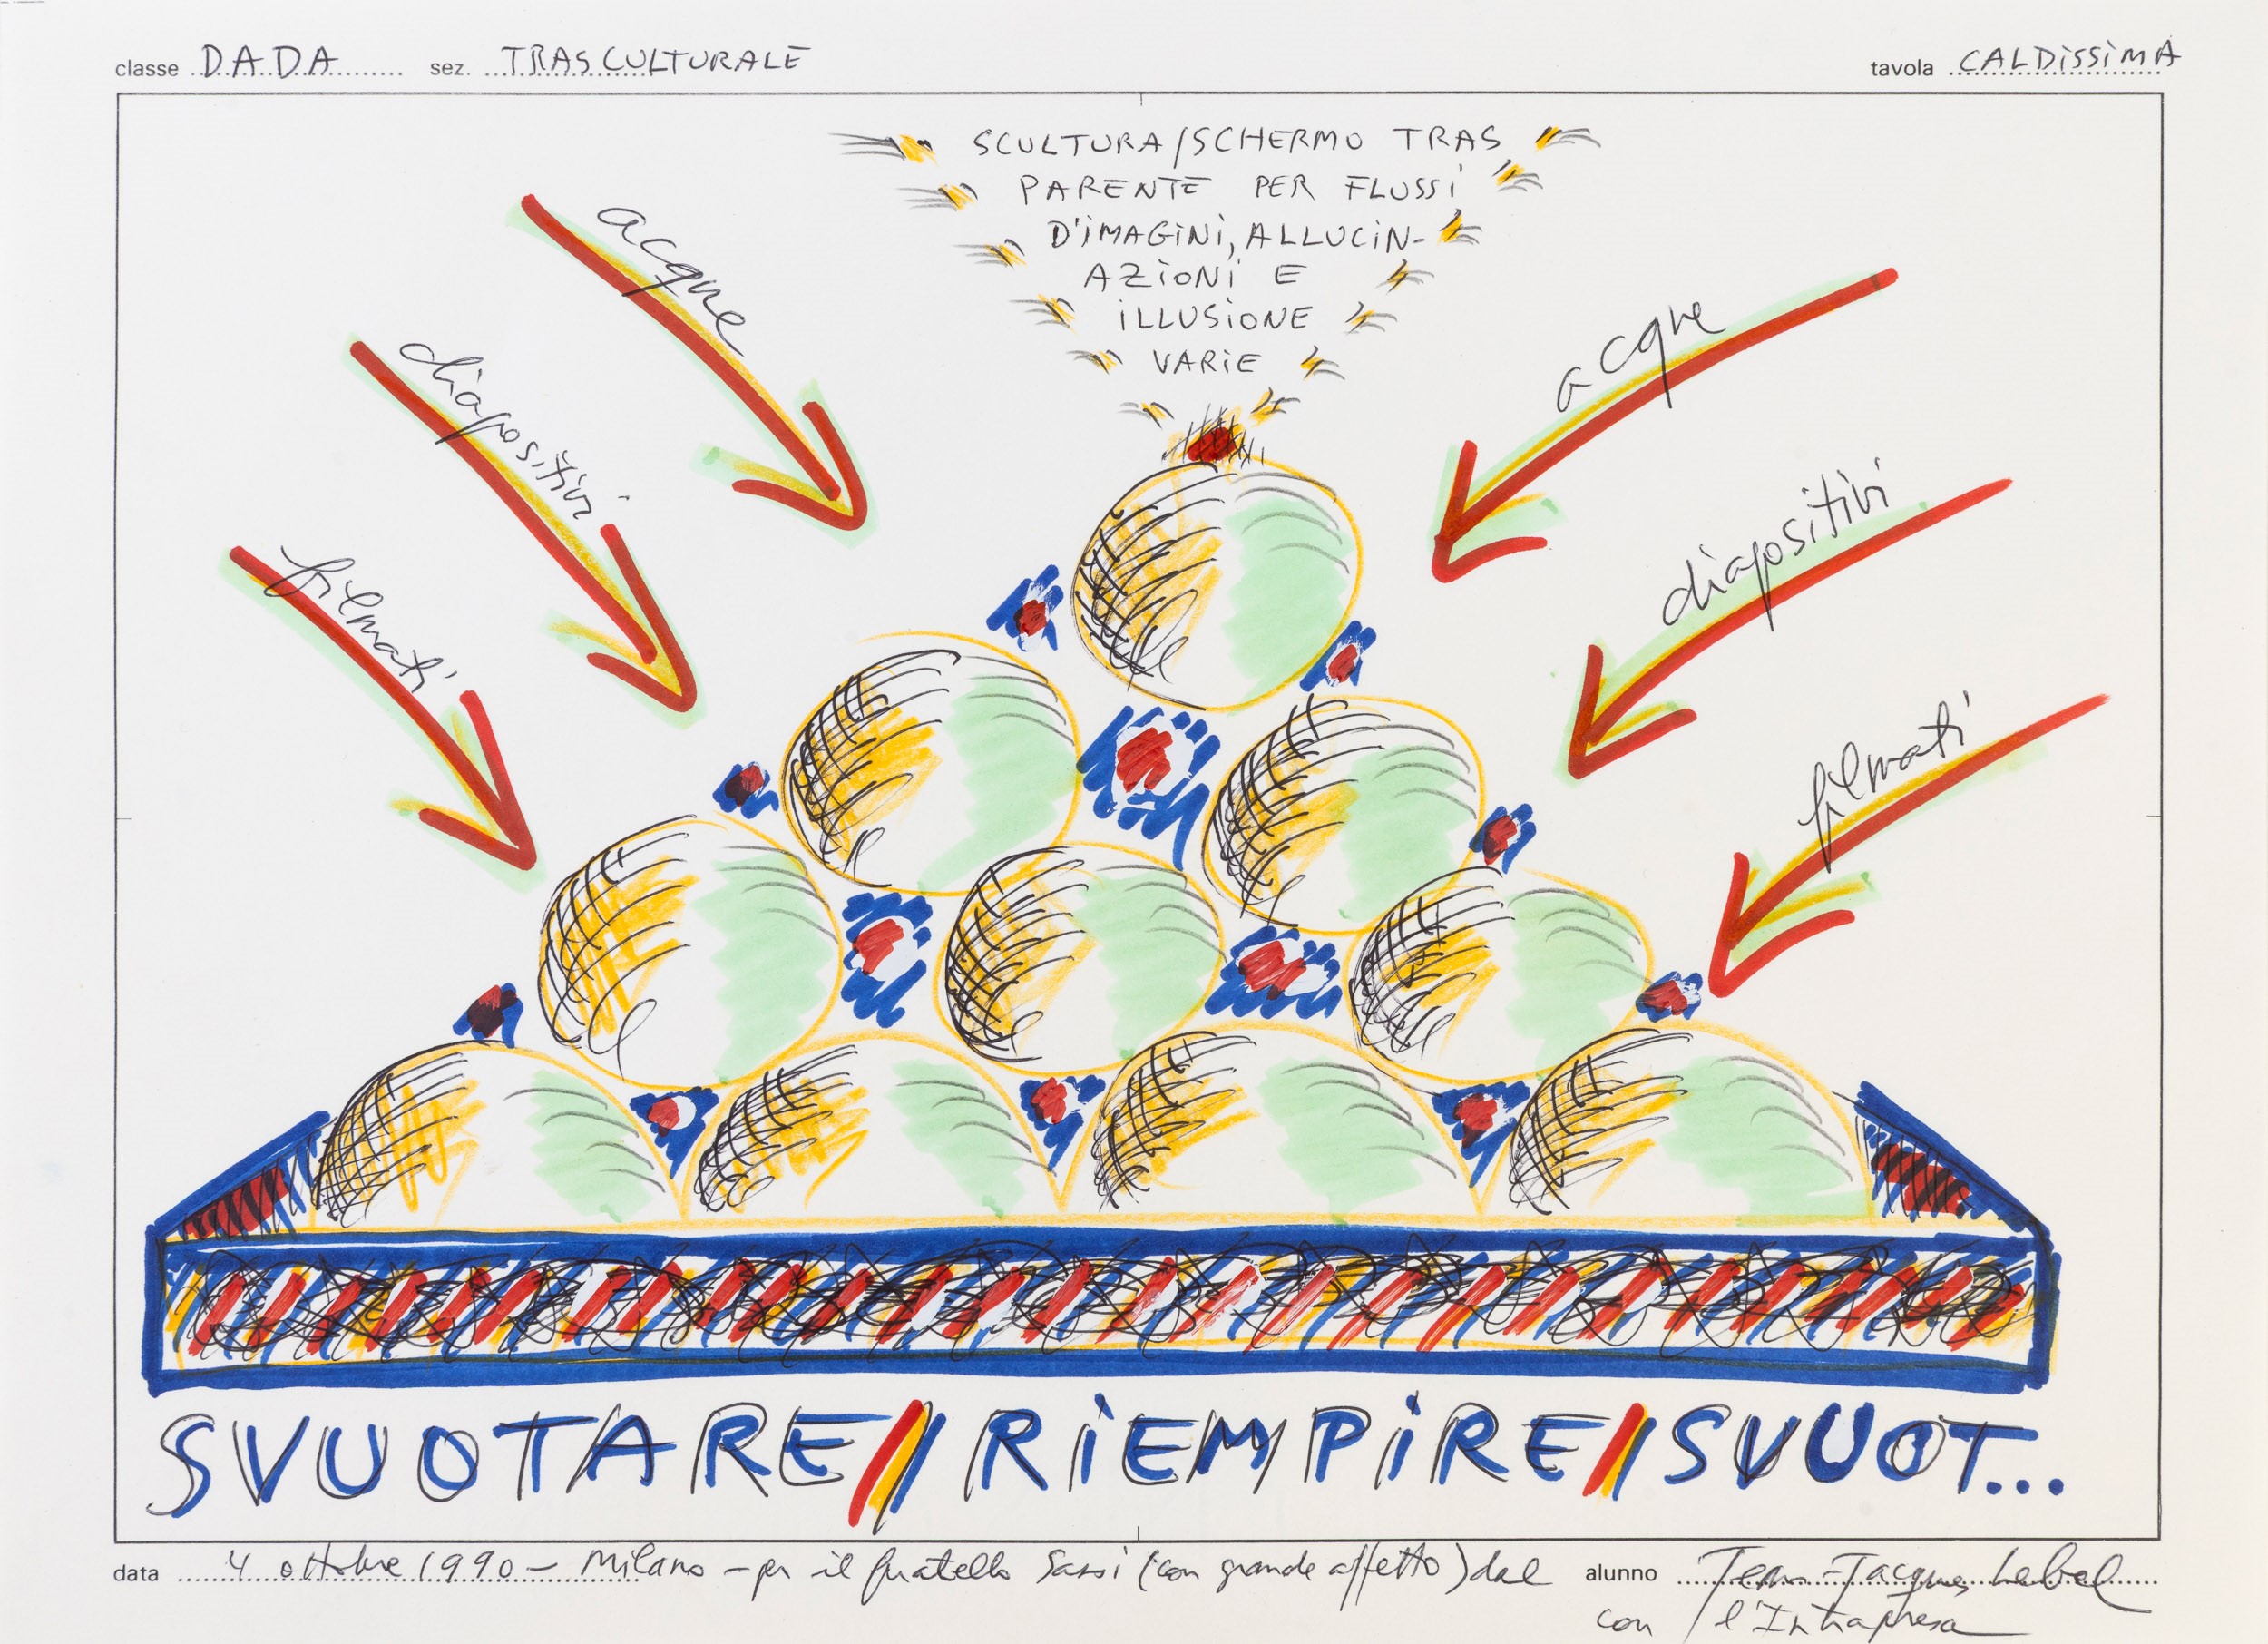 classe DADA sez. TRASCULTURALE tavola CALDiSSiMA
SCULTURA/SCHERMO TRAS
PARENTE PER FLUSSi
D'iMAGiNi, ALLUCiN-
AZiONi E
iLLUSiONE
VARiE
acque
diapositivi
filmati
acque
diapositivi
filmati
SVUOTARE// RiEMPiRE//SVUOT...
data 4 ottobre 1990 – Milano – per il fratello Sassi (con grande affetto) dal alunno Jean-Jacques Lebel
con l'Intrapresa